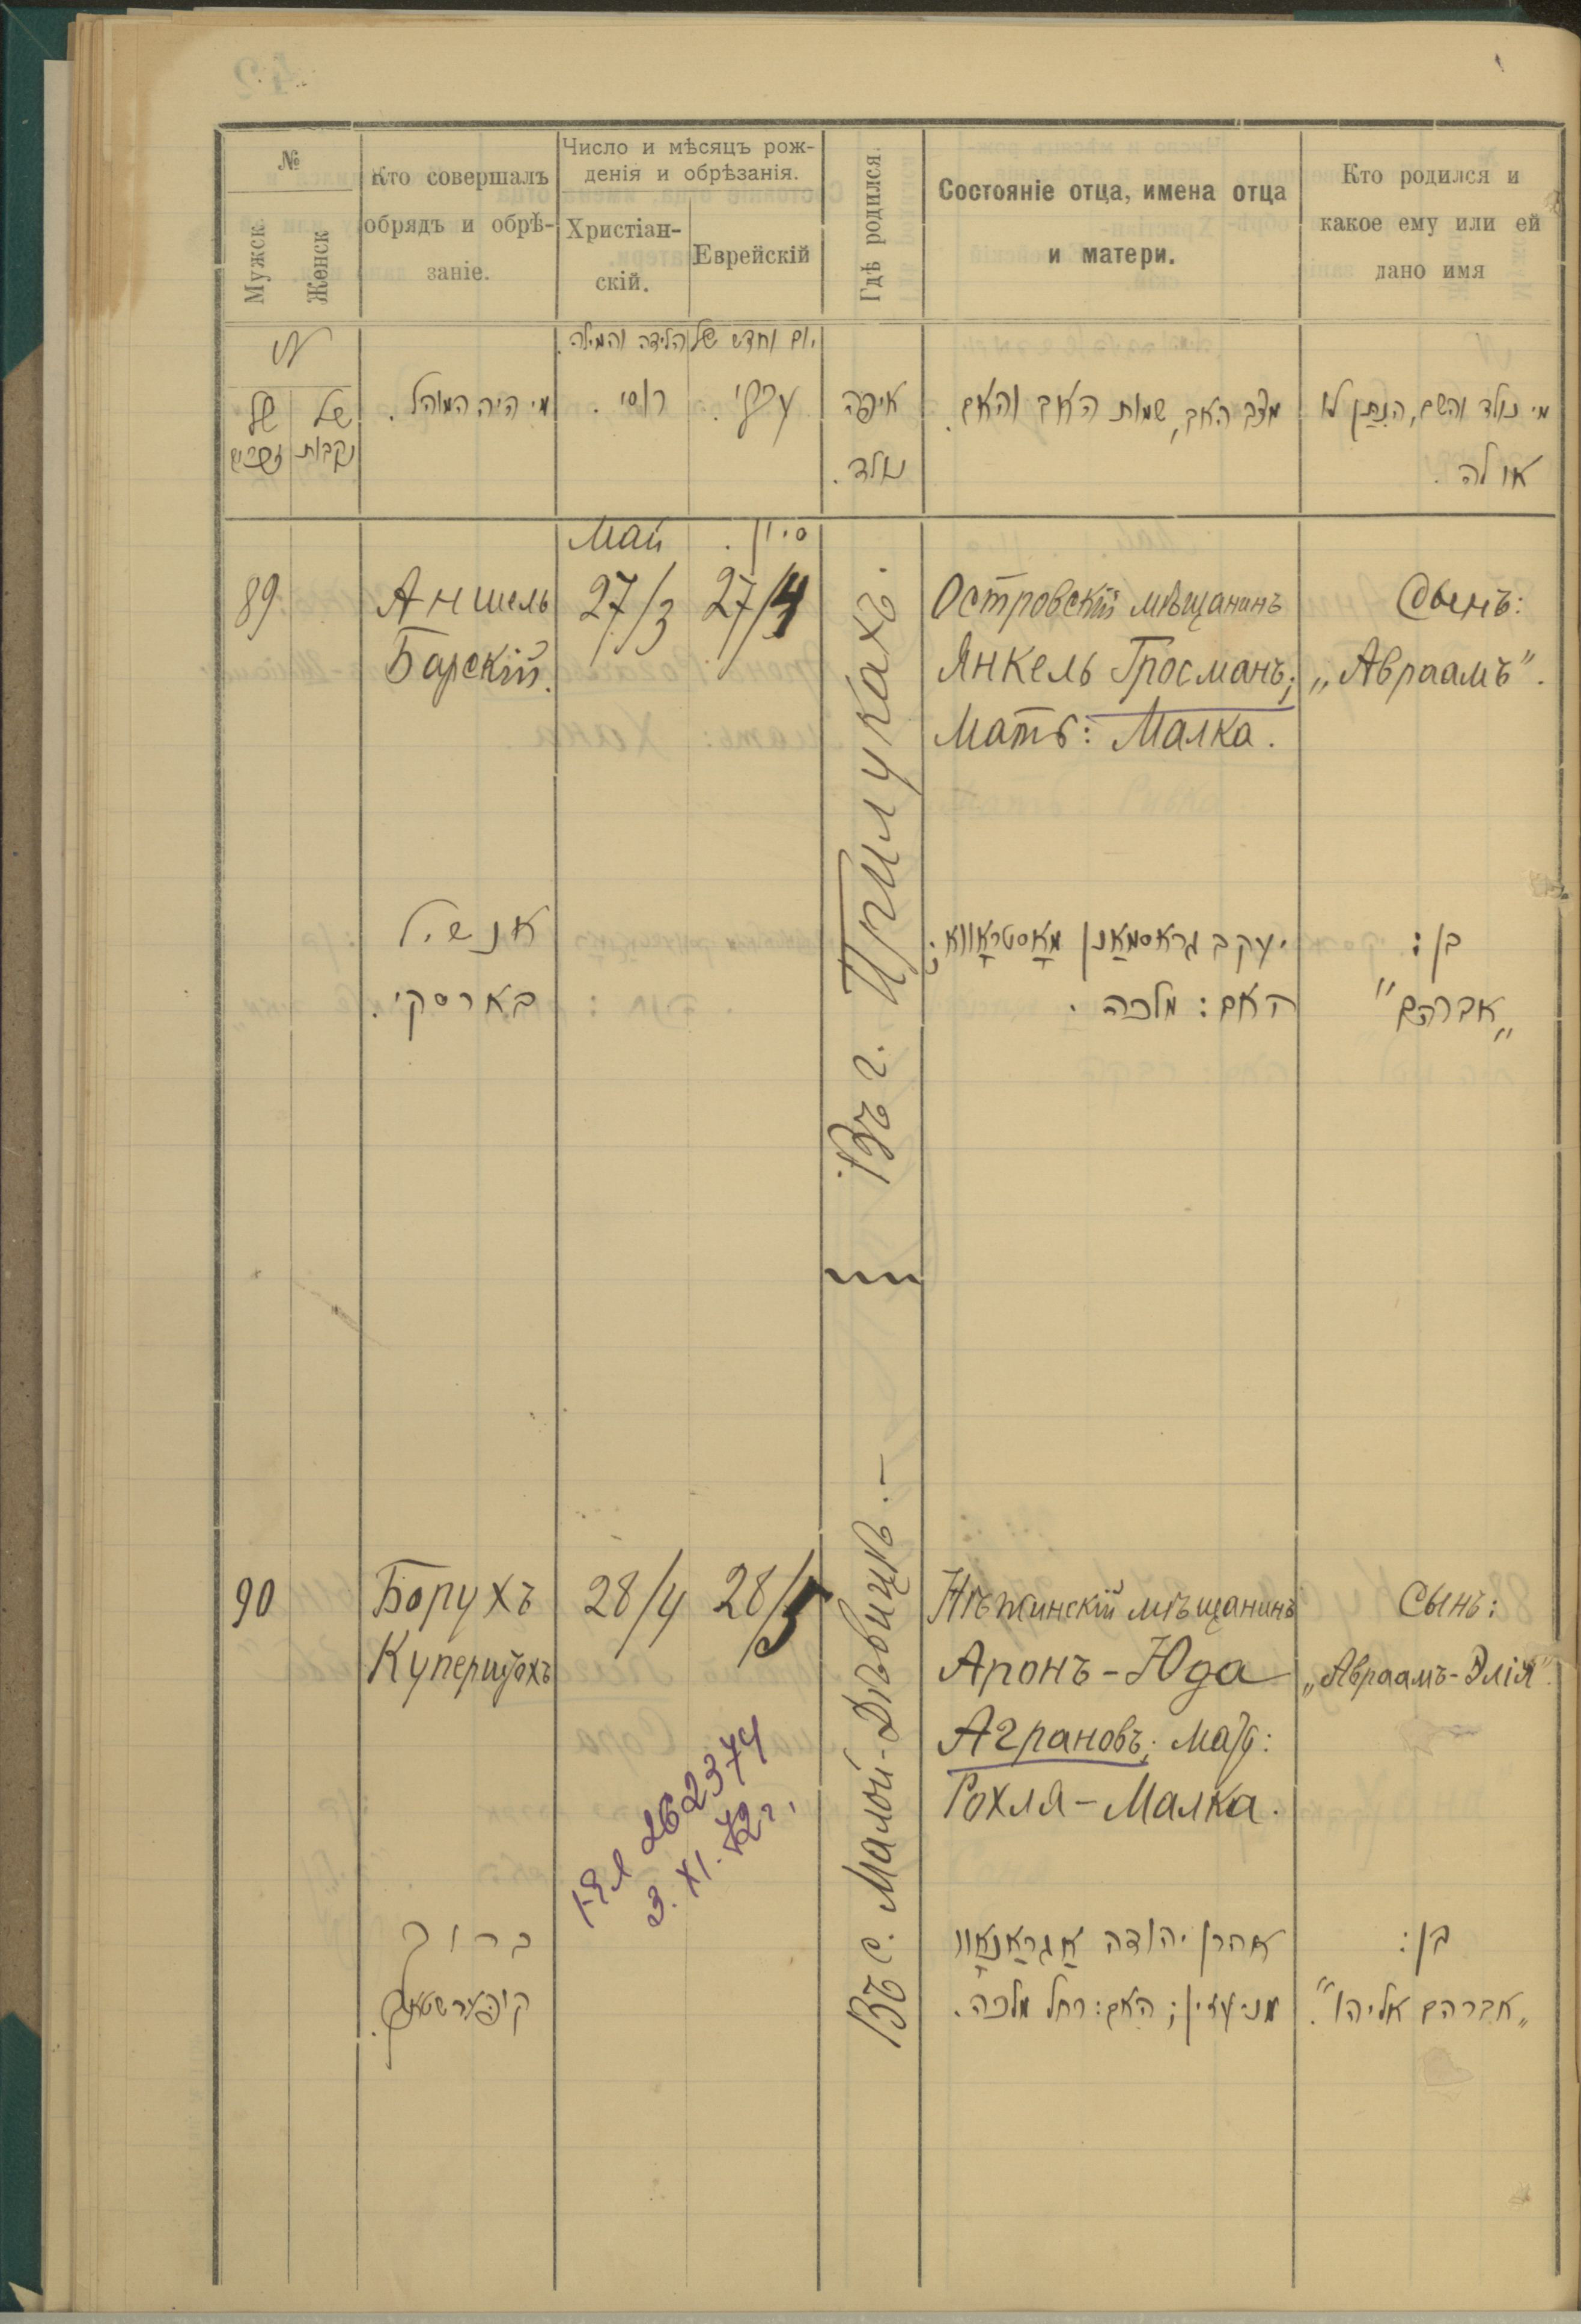 №
Мужск.
Женск
Кто совершалъ
обрядъ и обрѣ-
заніе.
Число и мѣсяцъ рож-
денія и обрѣзанія.
Христіан-
скій.
Еврейскій
Гдѣ родился.
Состояніе отца, имена отца
и матери.
Кто родился и
какое ему или ей
дано имя
N
של זכרים
של נקבות
מי היה המוהל.
יום וחדש של הלידה והמילה.
רוסי.
עברי.
איפה
נולד.
מצב האב, שמות האב והאם.
מי נולד והשם, הנתן לו
או לה.
Май
סיון.
89
Аншель
Барскій.
27/3
27/4
Въ г. Прилукахъ.
Островскій мѣщанинъ
Янкель Гросманъ;
Мать: Малка.
Сынъ:
„Авраамъ“.
אנשיל
בארסקי.
יעקב גראסמאַן מאָסטראָווא;
האם: מלכה.
בן:
„אברהם“
90
Борухъ
Куперштохъ
28/4
28/5
Въ с. Малой-Дѣвицѣ.-
Нѣжинскій мѣщанинъ
Аронъ-Юда
Аграновъ; мать:
Рохля-Малка.
Сынъ:
„Авраамъ-Элія“.
262374
3. XI. 72 г.
ברוך
קופערשטאָך.
אהרן יהודה אַגראַנאָוו
מניעזין; האם: רחל מלכה.
בן:
„אברהם אליהו“.